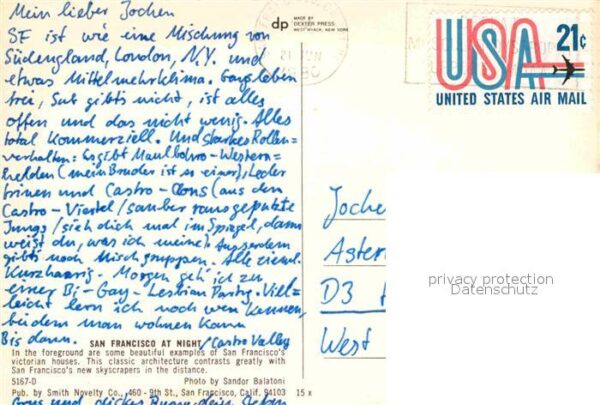 Mein lieber Jochen
SF ist wie eine Mischung von
Südengland, London, N.Y. und
etwas Mittelmehrklima. Gays leben
frei, Sub gibts nicht, ist alles
offen und das nicht wenig. Alles
total Kommerziell. Und starkes Rollen=
verhalten: Es gibt Maulboro-Western=
helden (mein Bruder ist so einer), Leder
trinen und Castro-Clons (aus dem
Castro-Viertel / sauber rausgeputzte
Jungs / sieh dich mal im Spiegel, dann
weist du, was ich meine). Ausserdem
gibts noch Mischgruppen. Alle zieml.
Kurzhaarig. Morgen geh ich zu
einer Bi-Gay-Lesbian Party. Viel=
leicht lern ich noch wen kennen,
bei dem man wohnen kann
Bis dann. /Castro Valley
SAN FRANCISCO AT NIGHT
In the foreground are some beautiful examples of San Francisco's
victorian houses. This classic architecture contrasts greatly with
San Francisco's new skyscrapers in the distance.
5167-D Photo by Sandor Balatoni
Pub. by Smith Novelty Co., 460 - 9th St., San Francisco, Calif. 94103 15 x
dp MADE BY
DEXTER PRESS
WEST NYACK, NEW YORK
21 JUN
USA 21c
UNITED STATES AIR MAIL
Joche
Aster
D3
West
privacy protection
Datenschutz